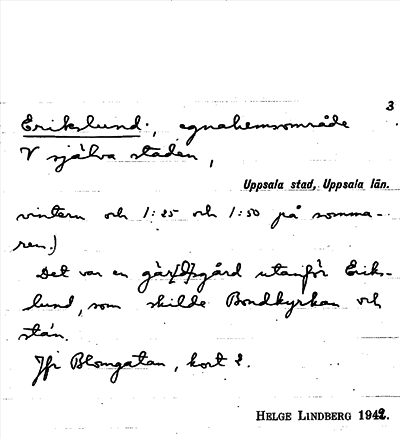 3
Erikslund., egnahemsområde
V själva staden,
Uppsala stad, Uppsala län.
vintern och 1:25 och 1:50 på somma-
ren.)
Det var en gär[d]sgård utanför Eriks-
lund, som skilde Bondkyrkan och
stán.
Jfr Blomgatan, kort 2.
HELGE LINDBERG 1942.